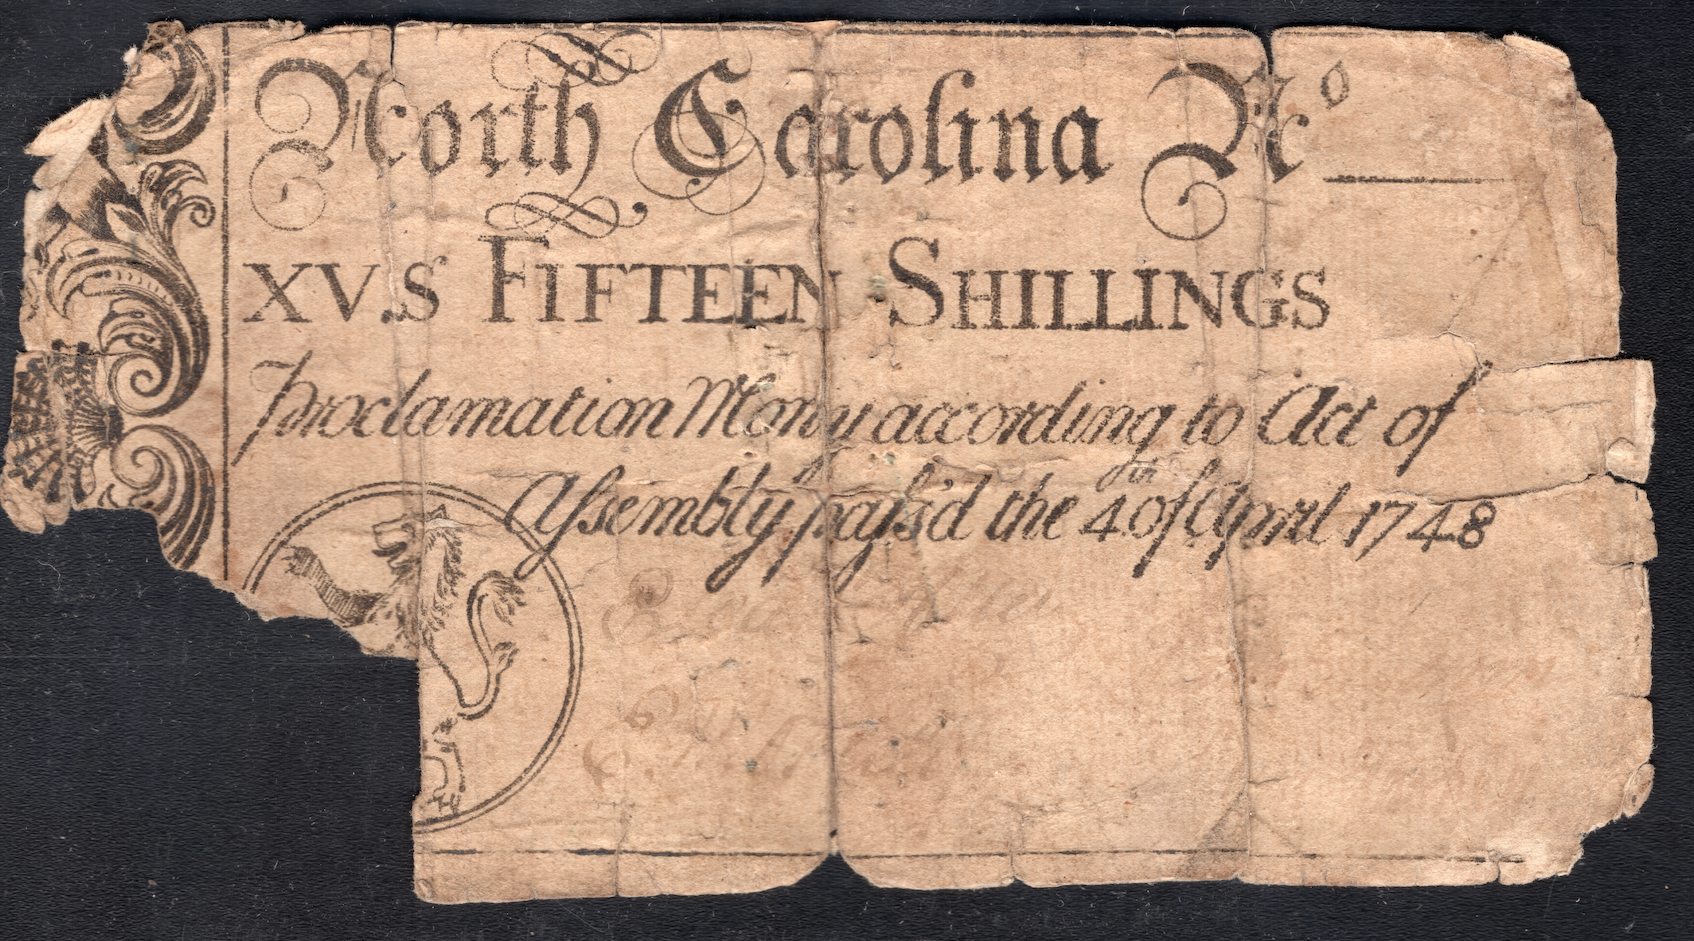 North Carolina No
XV.S FIFTEEN SHILLINGS
Proclamation Mony according to Act of
Aſsembly paſs'd the 4th of April 1748